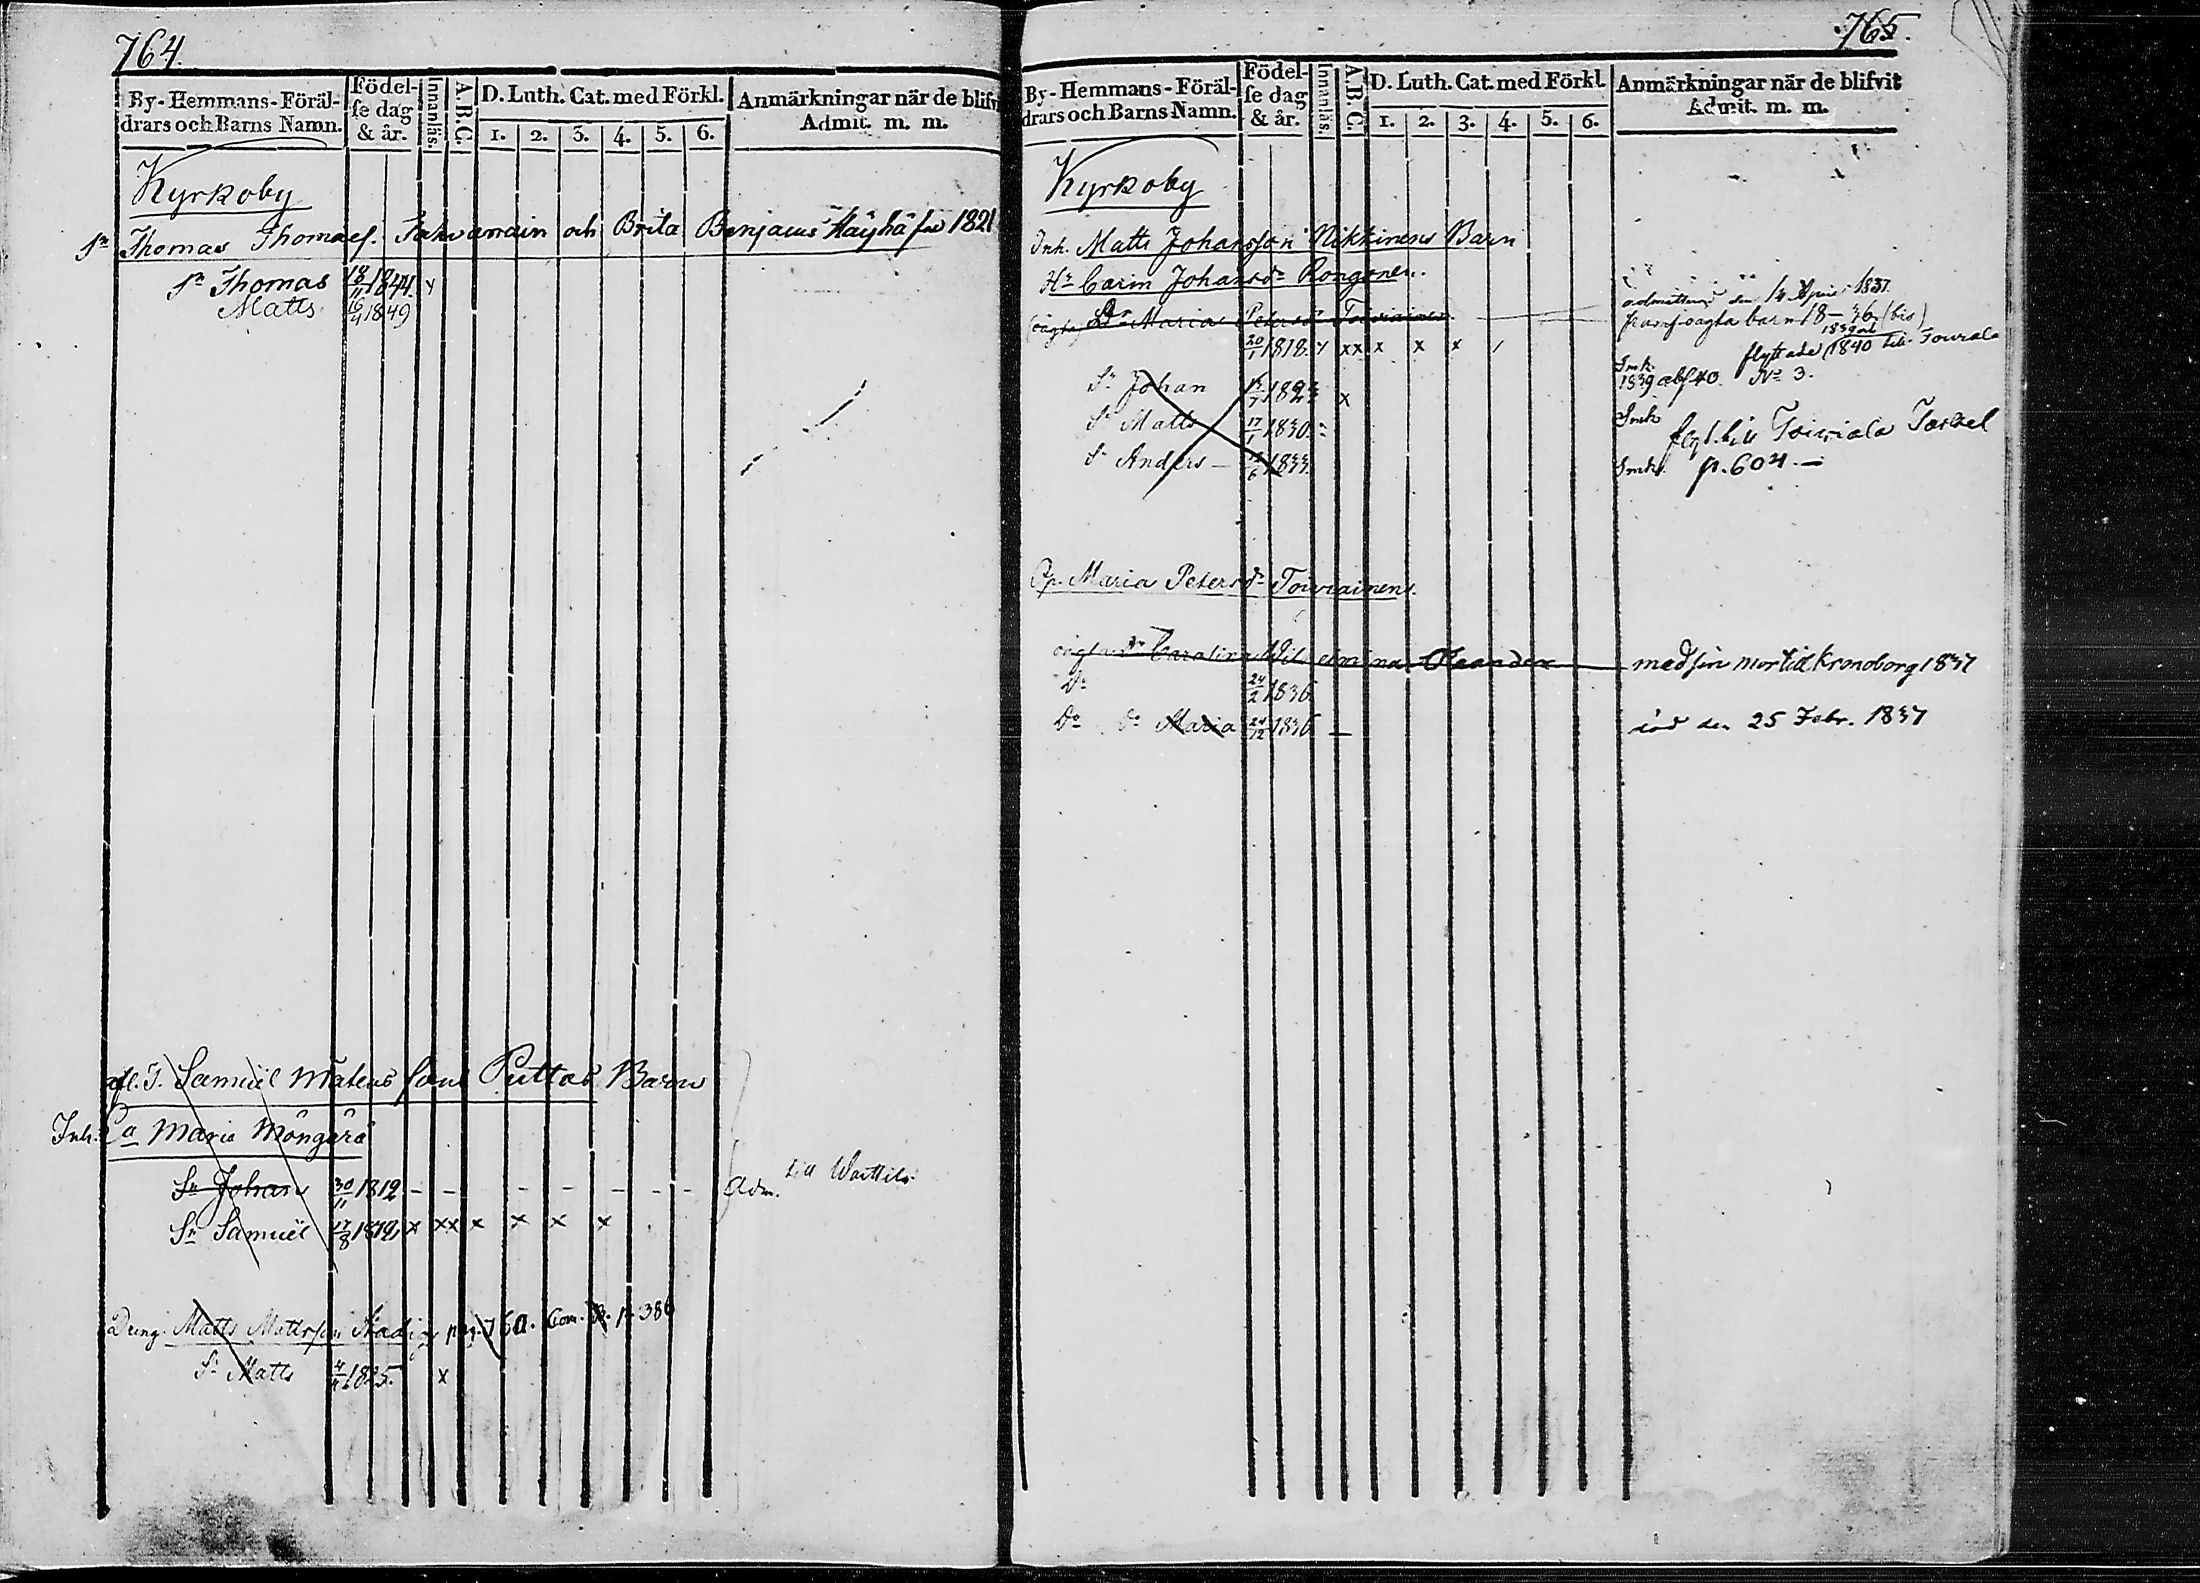 764.
By-Hemmans-Föräl-
drars och Barns Namn.
Födel-
se dag
& år.
Innanläs.
A.B.C.
D. Luth. Cat. med Förkl.
1. 2. 3. 4. 5. 6.
Anmärkningar när de blifv
Admit. m. m.
Kyrkoby
Sn Thomas Thomaes. och Brita Benjams Häyhä 1821
Sn Thomas 18/11 1844.
Matts 16/4 1849
afl. J. Samuël Mateus Puttas Barn
Inh. Ca Maria Möngärä
Sn Johan 30/11 1812 - - - - - - - Adm. till Warttila
Sn Samuël 17/8 1819 x xx x x x x
Dreng. Matts Mattsson pag. 750. Com. B. p. 386
Sn Matts 4/11 1825. x
765.
By-Hemmans-Föräl-
drars och Barns Namn.
Födel-
se dag
& år.
Innanläs.
A.B.C.
D. Luth. Cat. med Förkl.
1. 2. 3. 4. 5. 6.
Anmärkningar när de blifvit
Admit. m. m.
Kyrkoby
Inh. Matts Johansson Nikkinens Barn
Hu Carin Johansdr Rongonen.
oägta Dr Maria Petersdr Toiviainen
admitterad den 14 April 1837.
oägta barn 18-36 (bis)
20/1 1818. xx x x x
flyttade 1840 till Tourala
Sn Johan x
Smk. 1839 abs 40. No 3.
Sn Matts 17/1 1830.
Smk
flyt. till Toiviala
Sn Anders - 1833.
Smk. p. 604. -
Op. Maria Petersdr Toiviainens.
oägta dr Carolina Wilhelmina med sin mor till Kronoborg 1837
Dr 24/2 1836
Do dr Maria 24/12 1836 - död den 25 Febr. 1837